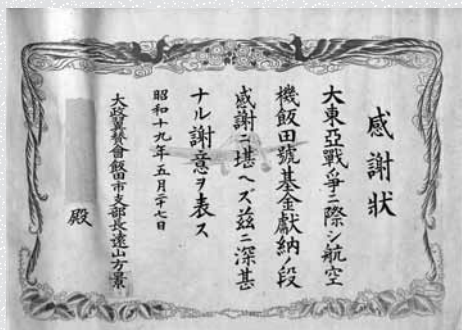 感謝狀
大東亞戰爭ニ際シ航空
機飯田號基金獻納ノ段
感謝ニ堪ヘズ茲ニ深甚
ナル謝意ヲ表ス
昭和十九年五月二十七日
大政翼賛會飯田市支部長遠山方景
殿